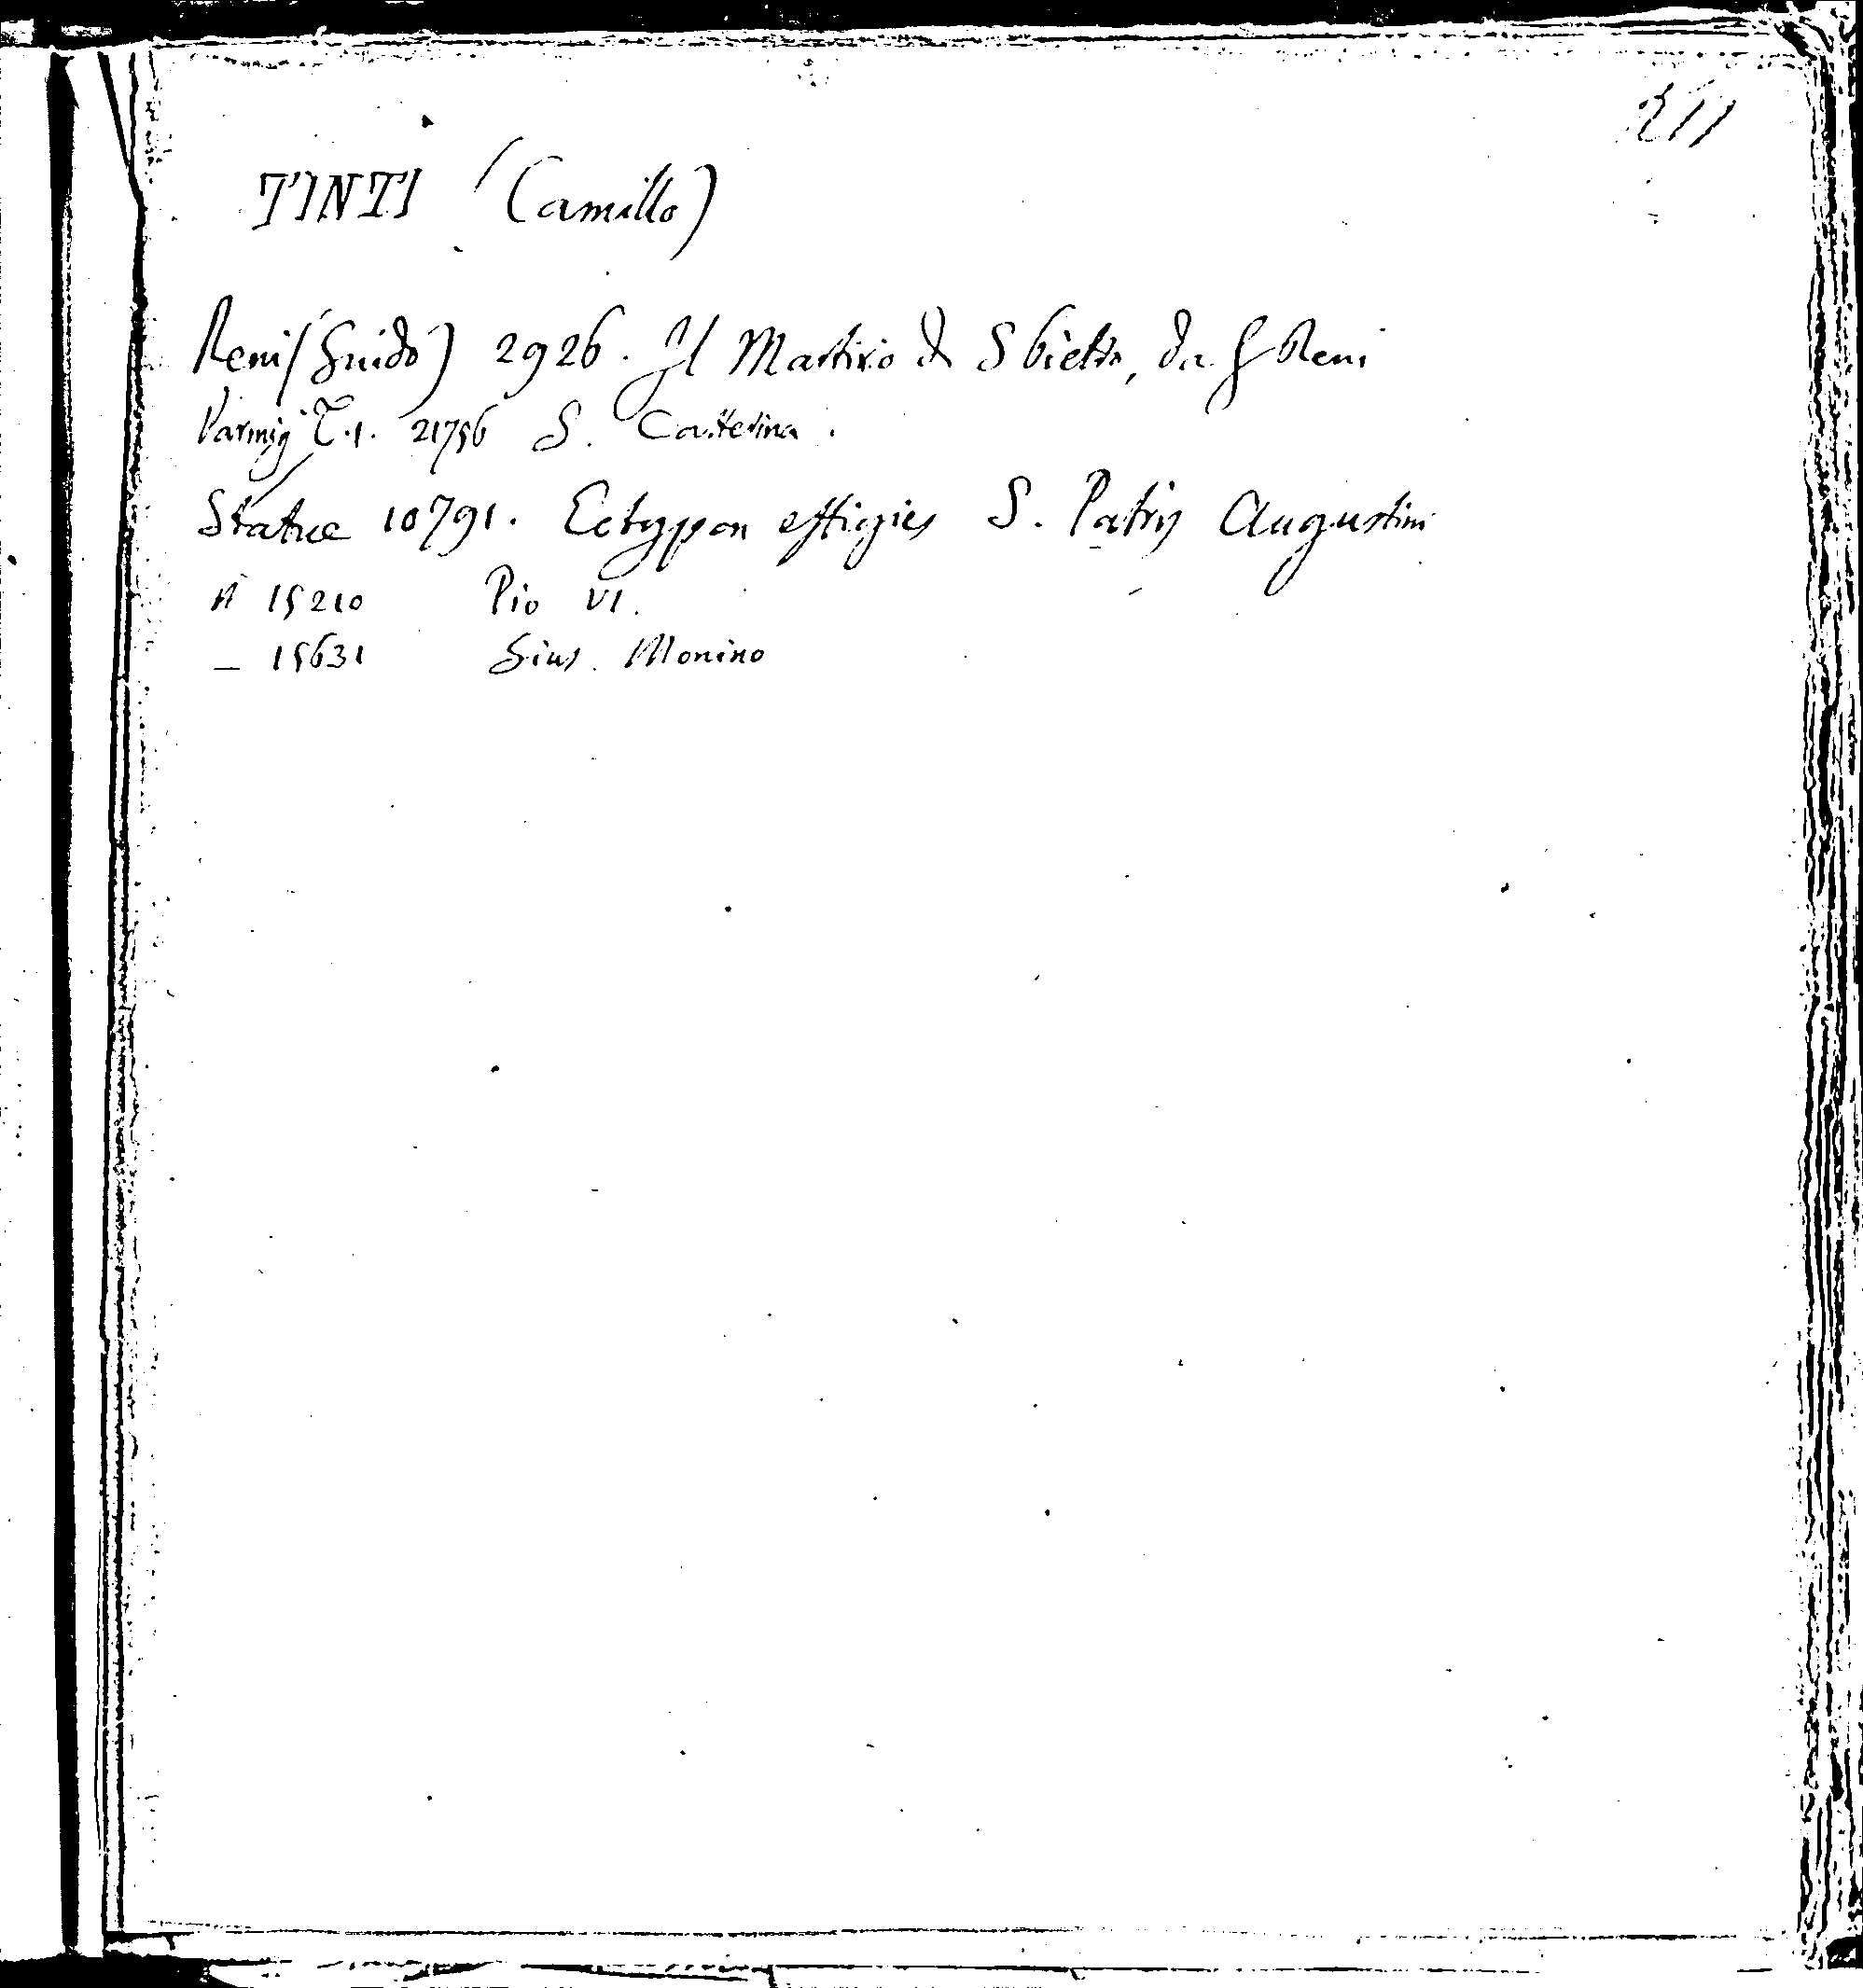 211
TINTI (Camillo)
Reni (Guido) 2926. Il Martirio di S Pietro, da G Reni
Parmig T.1. 21756 S. Catterina.
Statue 10791. Ectypon effigies S. Patris Augustini
R 15210 Pio VI.
— 15631 Gius. Monino